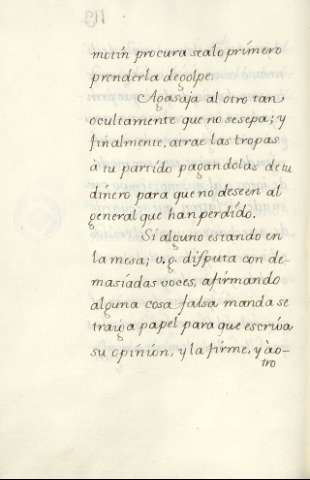 motín procura sealo prímero
prenderla degolpe.
Agasaja al otro tan
ocultamente que no sesepa; y
finalmente, atrae las tropas
à tu partído pagandolas de tu
dínero para que no deseen al
general que han perdído.
Si alguno estando en
la mesa; v.g. disputa con de-
masíadas voces, afirmando
alguna cosa falsa manda se
traiga papel para que escriva
su opiníon, y la firme, y à o-
tro